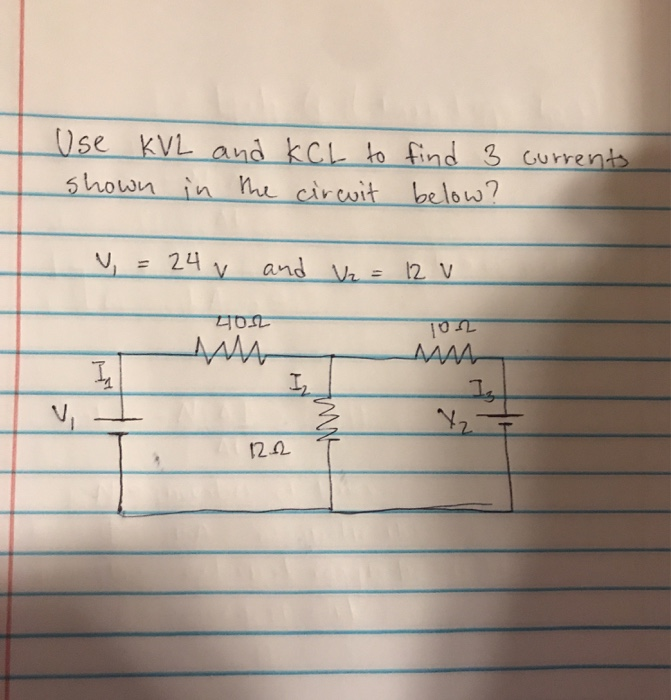 Use KVL and KCL to find 3 currents
shown in the circuit below?
V₁ = 24 v and V₂ = 12 V
40Ω 10Ω
I₁ I₂ I₃
V₁ V₂
12Ω